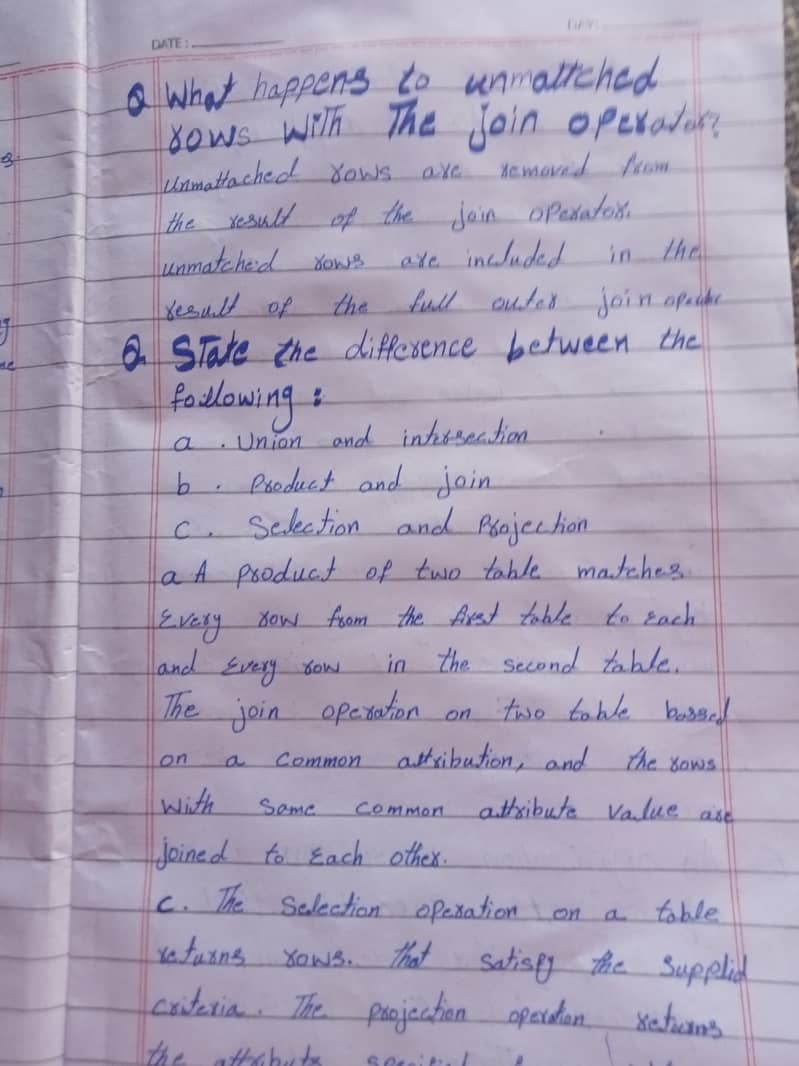 DATE:
Q What happens to unmattched
rows with The join operator?
Unmattached rows are removed from
the result of the join operator.
unmatched rows are included in the
result of the full outer join
Q. State the difference between the
following :
a . Union and intersection
b . Product and join
c . Selection and Projection
a A product of two table matches
Every row from the first table to each
and Every row in the second table.
The join operation on two table bassed
on a common attribution, and the rows
with same common attribute value are
joined to Each other.
c. The Selection operation on a table
returns rows. that satisfy the Supplid
criteria. The projection operation returns
the